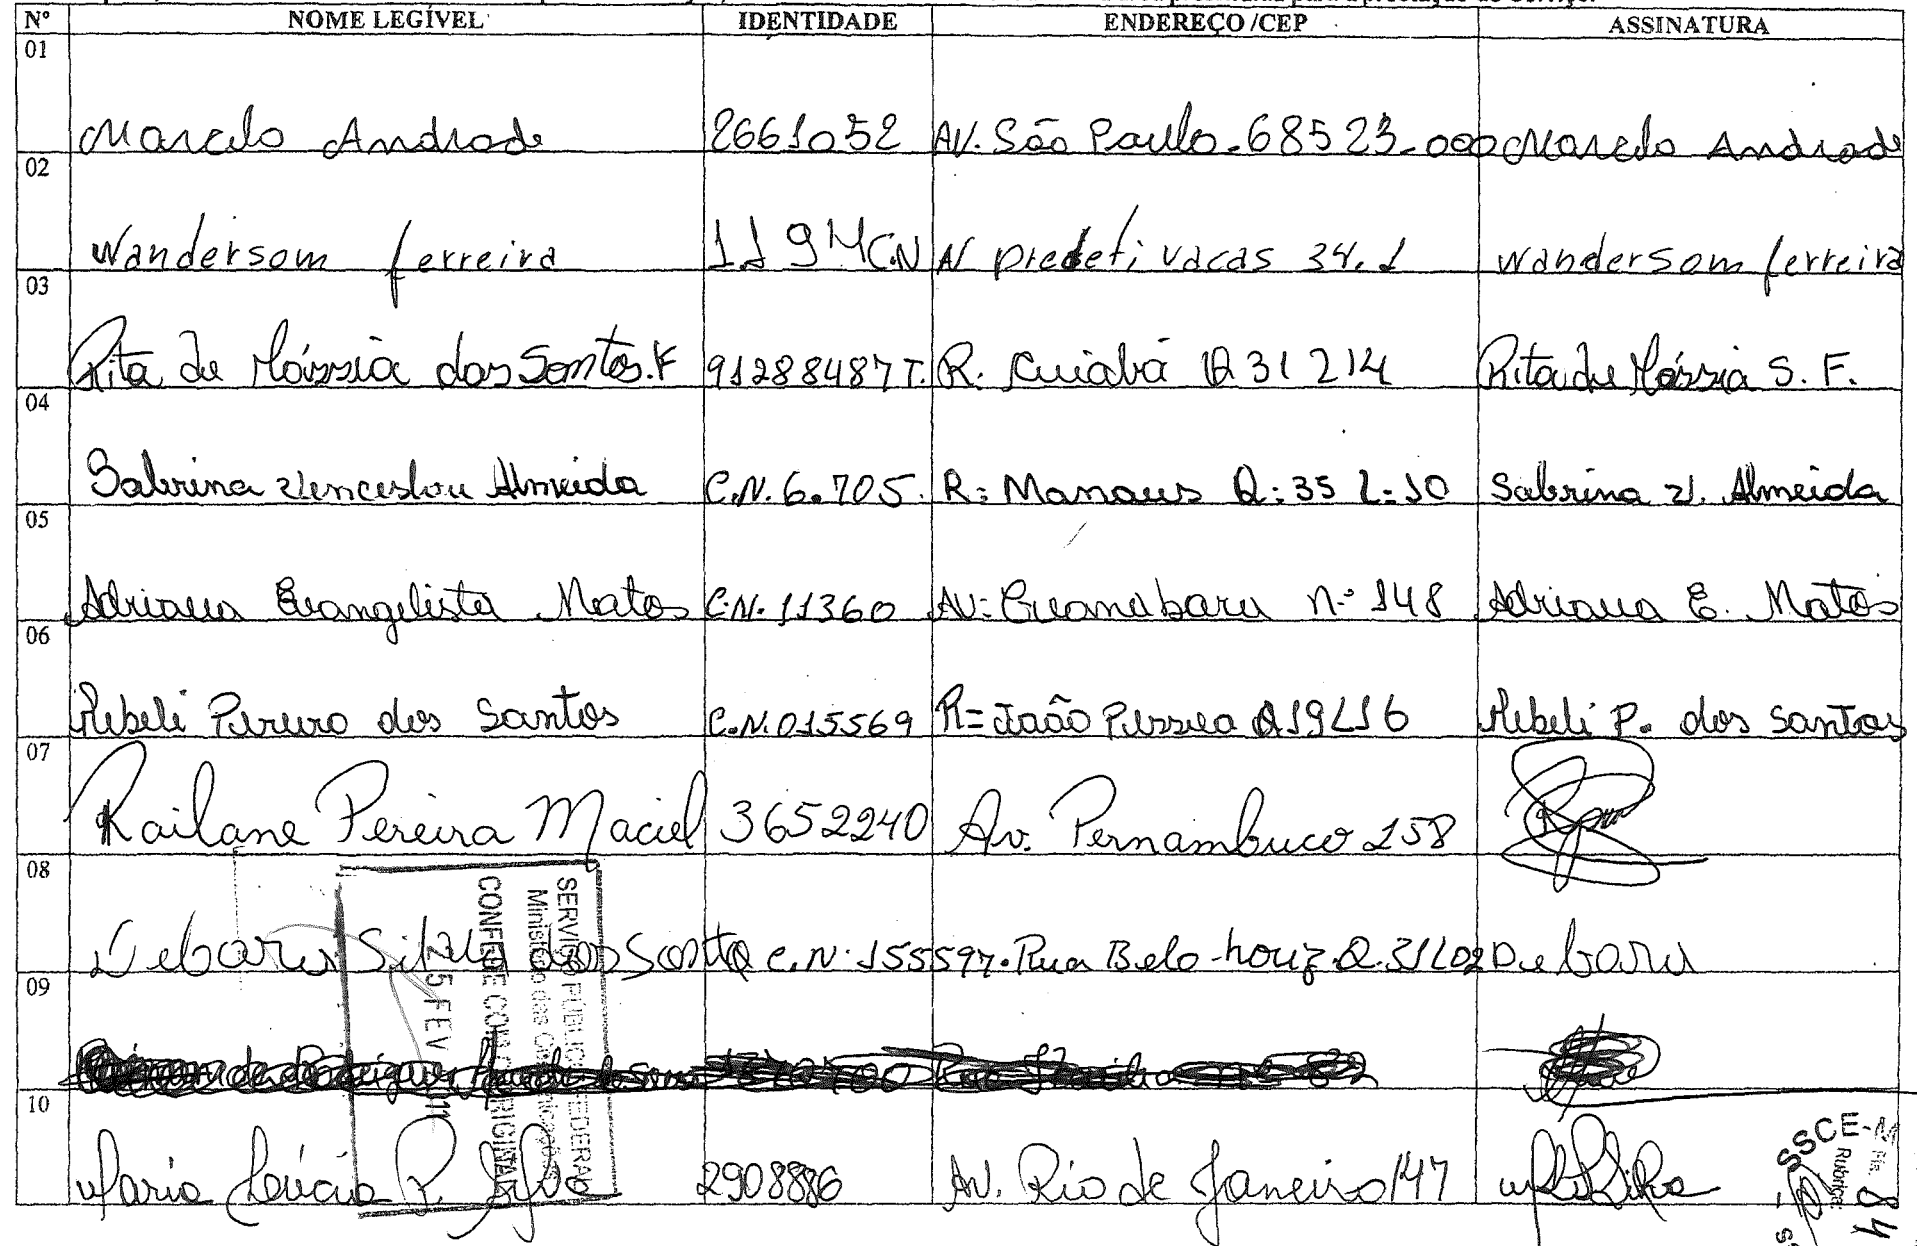 Nº NOME LEGÍVEL IDENTIDADE ENDEREÇO /CEP ASSINATURA
01 Marcelo Andrade 2661052 AV. São Paulo - 68523-000 Marcelo Andrade
02 Wandersom ferreira 119 MCN 34.1 Wandersom ferreira
03 Rita de Kássia dos Santos. F 91288487 T. R. Cuiabá Q 31 214 Rita de Kássia S. F.
04 Sabrina Venceslou Almeida C.N. 6.705. R: Manaus Q: 35 L: 10 Sabrina V. Almeida
05 Adriana Evangelista Matos C.N. 11360 AV: Guanabara nº 148 Adriana E. Matos
06 Rebeli Pereira dos Santos C.N. 015569 R= João Pessoa Q19L16 Rebeli P. dos Santos
07 Railane Pereira Maciel 3652240 Av. Pernambuco 158
08 Debora Silva dos Santo C.N. 155597. Rua Belo-horiz. Q. 31L02 Debora
09
10 Maria Lúcia P. Silva 2908886 AV. Rio de Janeiro 147
SERVIÇO PÚBLICO FEDERAL
Ministério das Comunicações
CONFERE COM ORIGINAL
FEV
SSCE-M
Fls. 84
Rubrica: